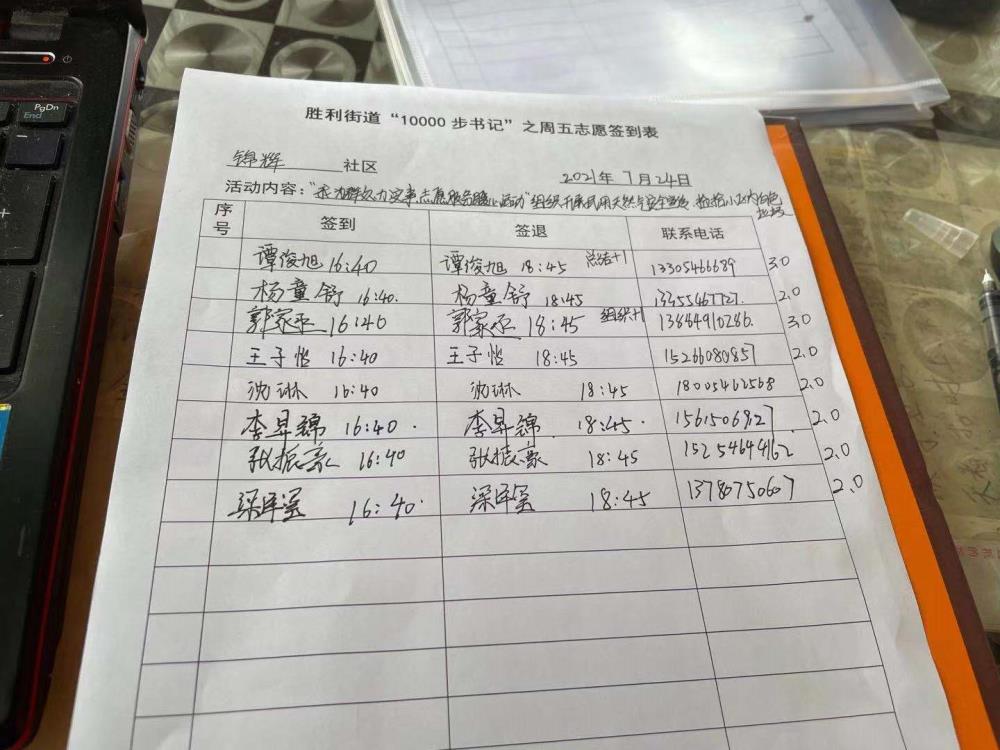 PgDn
End
胜利街道“10000步书记”之周五志愿签到表
锦辉 社区 2021年 7月24日
活动内容:“我为群众办实事志愿服务暖心活动”组织开展民用天然气安全宣传、捡拾小区内白色垃圾
序号 签到 签退 联系电话
谭俊旭 16:40 谭俊旭 18:45 总结+1 13305466689 3.0
杨童舒 16:40. 杨童舒 18:45 13455467727. 2.0
郭家丞 16:40 郭家丞 18:45 组织+1 13864910286. 3.0
王子怡 16:40 王子怡 18:45 15266080857 2.0
沈琳 16:40 沈琳 18:45 18005462568 2.0
李昇锦 16:40. 李昇锦 18:45. 2.0
张振豪 16:40 张振豪 18:45 15254644162 2.0
16:40. 18:45 13780750607 2.0